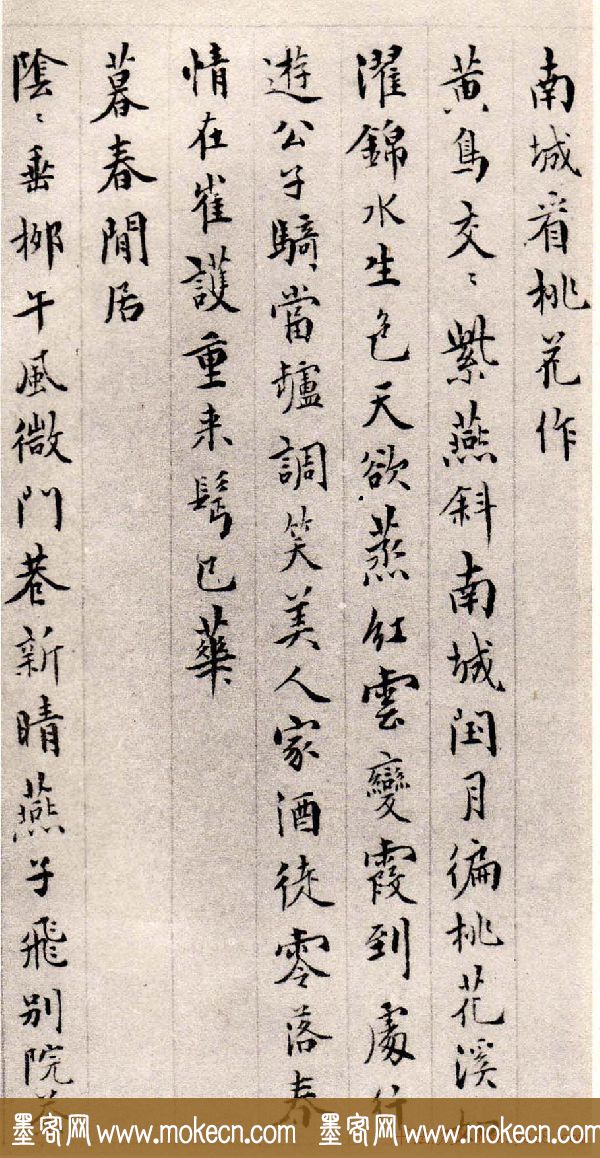 南城看桃花作
黄鳥交〻紫燕斜南城閏月徧桃花溪如
濯錦水生色天欲蒸紅雲變霞到處行
遊公子騎當壚調笑美人家酒徒零落春
情在崔護重来鬢已華
暮春閒居
陰〻垂柳午風微門巷新晴燕子飛别院
墨客网 www.mokecn.com 墨客网 www.mokecn.com